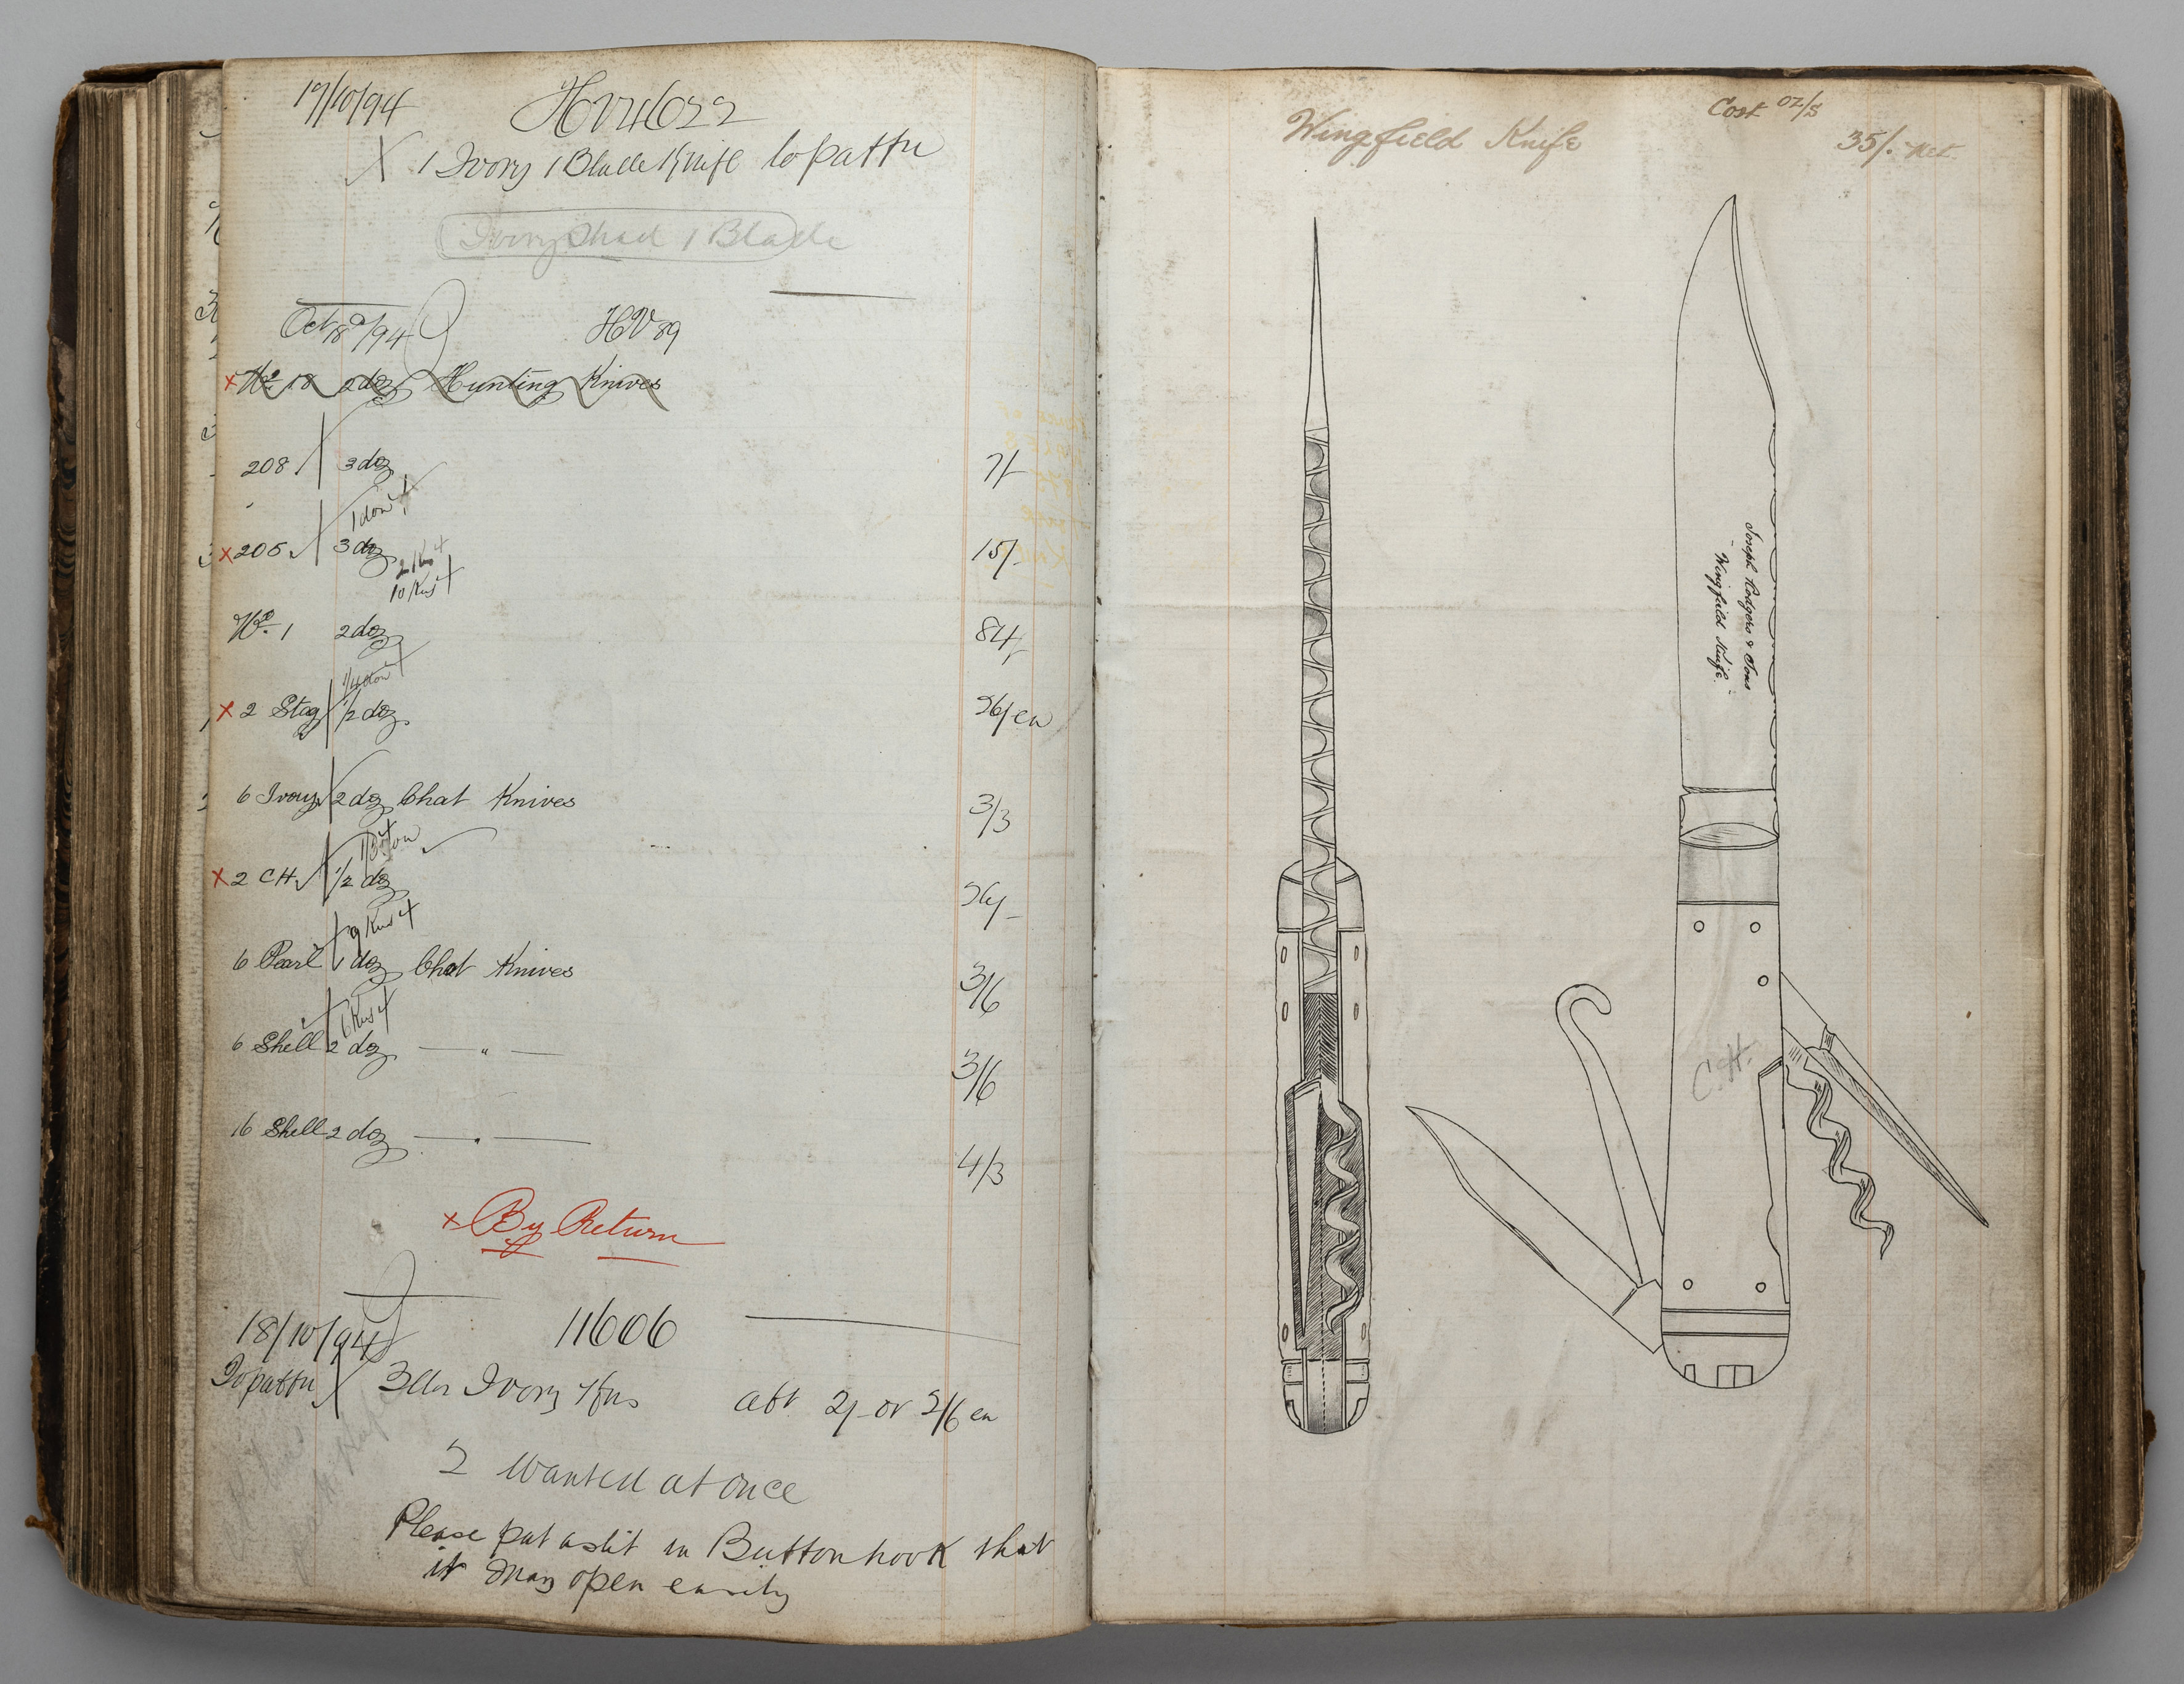 17/10/94
X 1 Ivory 1 Blade Knife to pattn
1 Blade
Oct 18/94 HV 89
x No 18 2 doz Hunting Knives
208 3 doz 7/-
x 205 3 doz 15/-
10 Kns
No 1 2 doz 84/-
x 2 Stag 1/2 doz
6 Ivory 2 doz Chat Knives 3/3
x 2 CH. 1/2 doz
9 Kns
6 Pearl 1 doz Chat Knives 3/6
6 Kns
6 Shell 2 doz — " — 3/6
16 Shell 2 doz — " — 4/3
x By Return
18/10/94 11606
To pattn X Ivory 2/- or 2/6 ea
2 Wanted at once
Please put a slit in Buttonhook that
it may open easily
Wingfield Knife
Cost
35/. net.
Joseph Rodgers & Sons
"Wingfield Knife."
C.H.